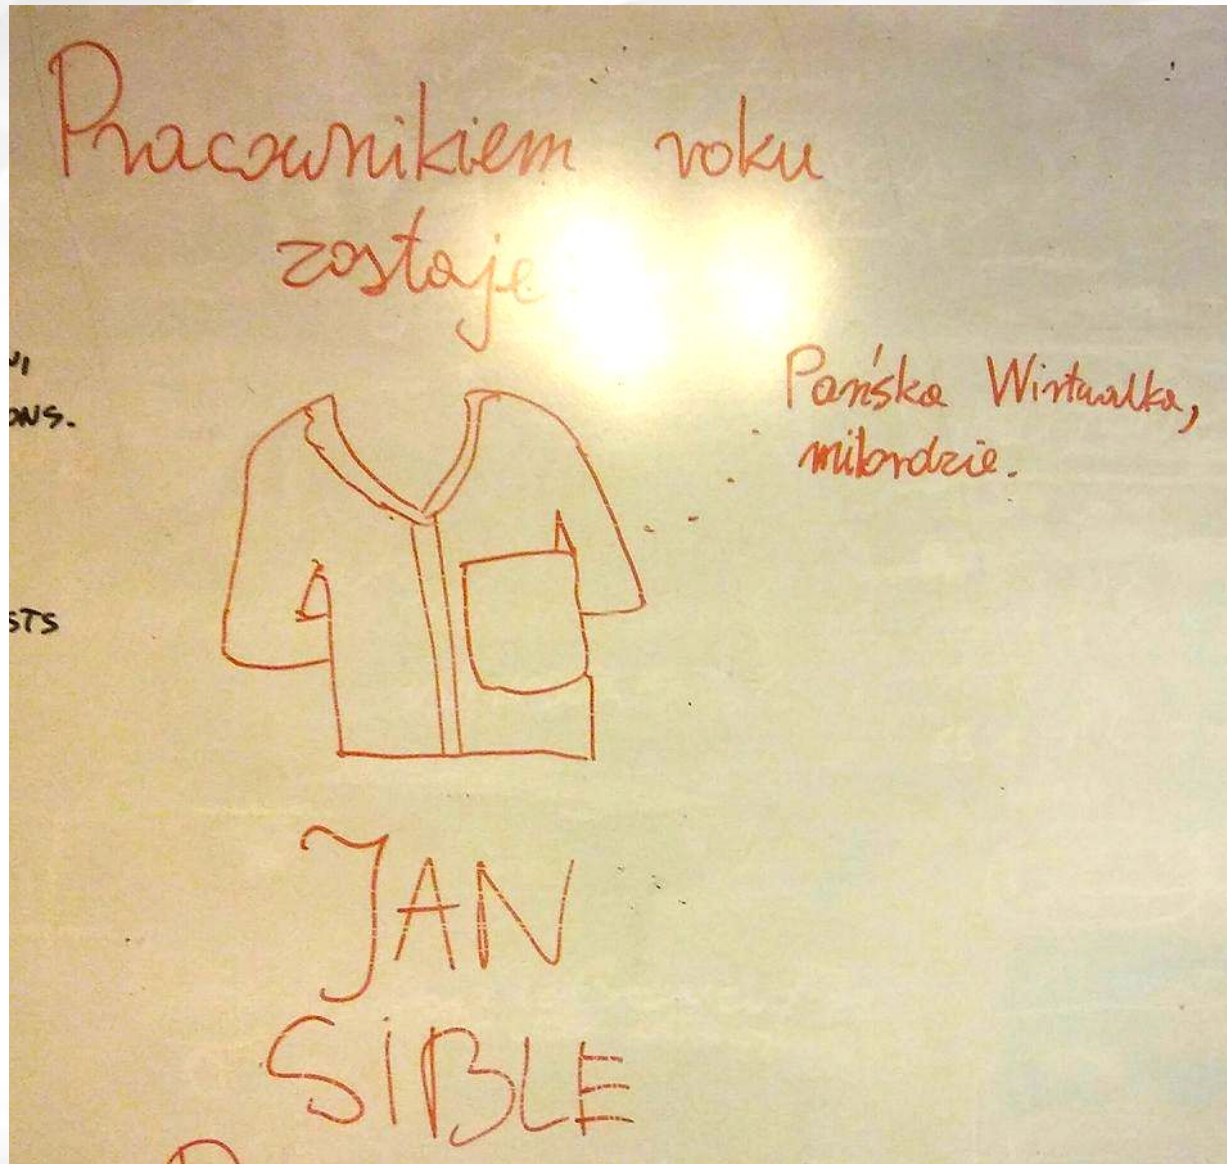 Pracownikiem roku
zostaje
Pańska Wirtualka,
milordzie.
JAN
SIBLE